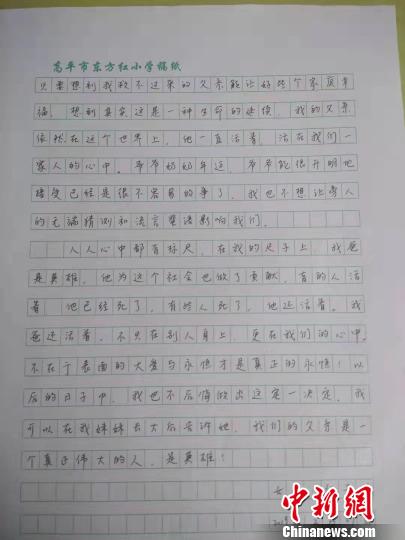 高平市东方红小学稿纸
只要想到我救不过来的父亲能让好些个家庭幸
福。想到其实这是一种生命的延续，我的父亲
依然在这个世界上，他一直活着，活在我们一
家人的心中。爷爷奶奶年迈，爷爷能很开明地
接受已经是很不容易的事了，我也不想让旁人
的无端猜测和流言蜚语影响我们。
人人心中都有标尺，在我的尺子上，我爸
是英雄，他为这个社会也做了贡献，有的人活
着 他已经死了，有些人死了，他还活着。我
爸还活着，不只在别人身上，更在我们的心中。
不在于表面的大爱与永恒才是真正的永恒！以
后的日子中，我也不后悔做出这定一决定，我
可以在我妹妹长大后告诉她，我们的父亲是一
个真正伟大的人，是英雄！
女
中新网